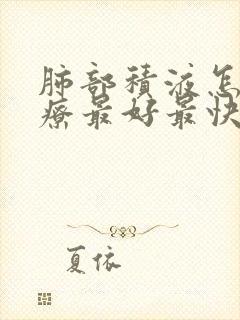 肺部積液怎
療最好最快
夏依